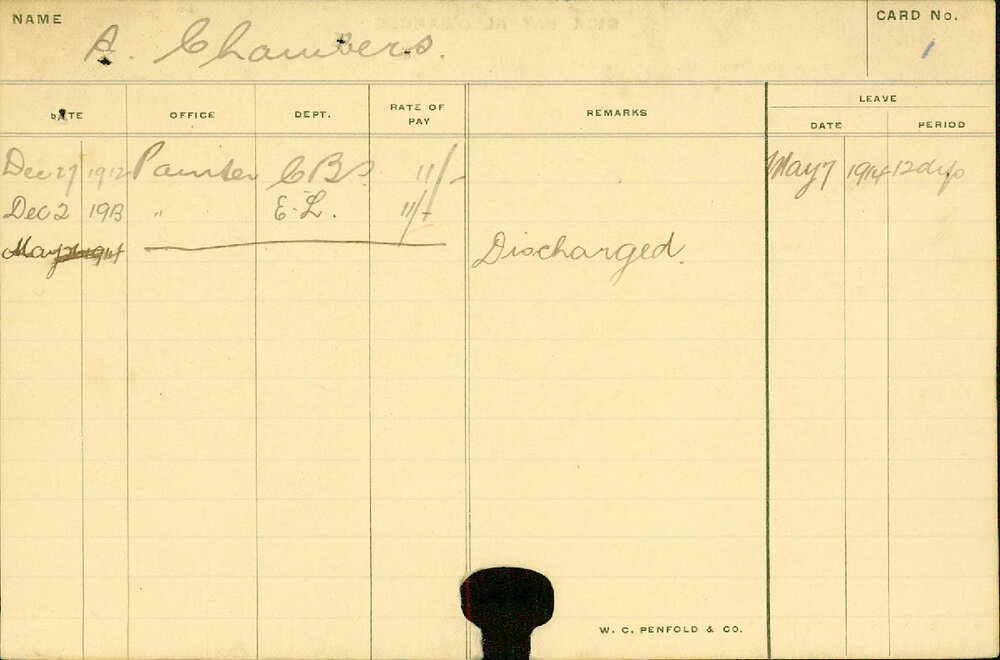 NAME
A. Chambers.
CARD No.
1
DATE OFFICE DEPT. RATE OF PAY REMARKS LEAVE
DATE PERIOD
Dec 27 1912 Painter CBS 11/- May 7 1914 12 dys
Dec 2 1913 " E.L. 11/-
May 1914 Discharged.
W. C. PENFOLD & CO.